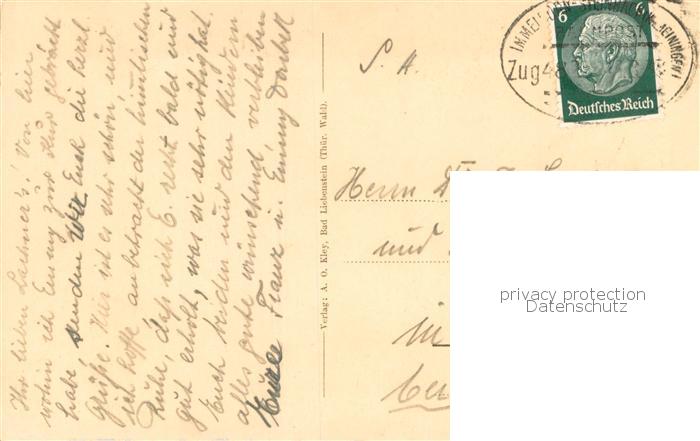 Ihr lieben Lachner's! Von hier
wohin ich Emmy zur Kur gebracht
habe, senden wir Euch die herzl.
Grüße. Hier ist es sehr schön und
ich hoffe anbetracht der himmlischen
Ruhe, daß sich E. recht bald und
gut erholt, was sie sehr nötig hat.
Euch beiden und den Kindern
alles gute wünschend verbleiben
Eure Franz u. Emmy
Verlag: A. O. Kley, Bad Liebenstein (Thür. Wald).
S. A.
Herrn
und
in
6 6
Deutsches Reich
BAHNPOST
Zug
privacy protection
Datenschutz